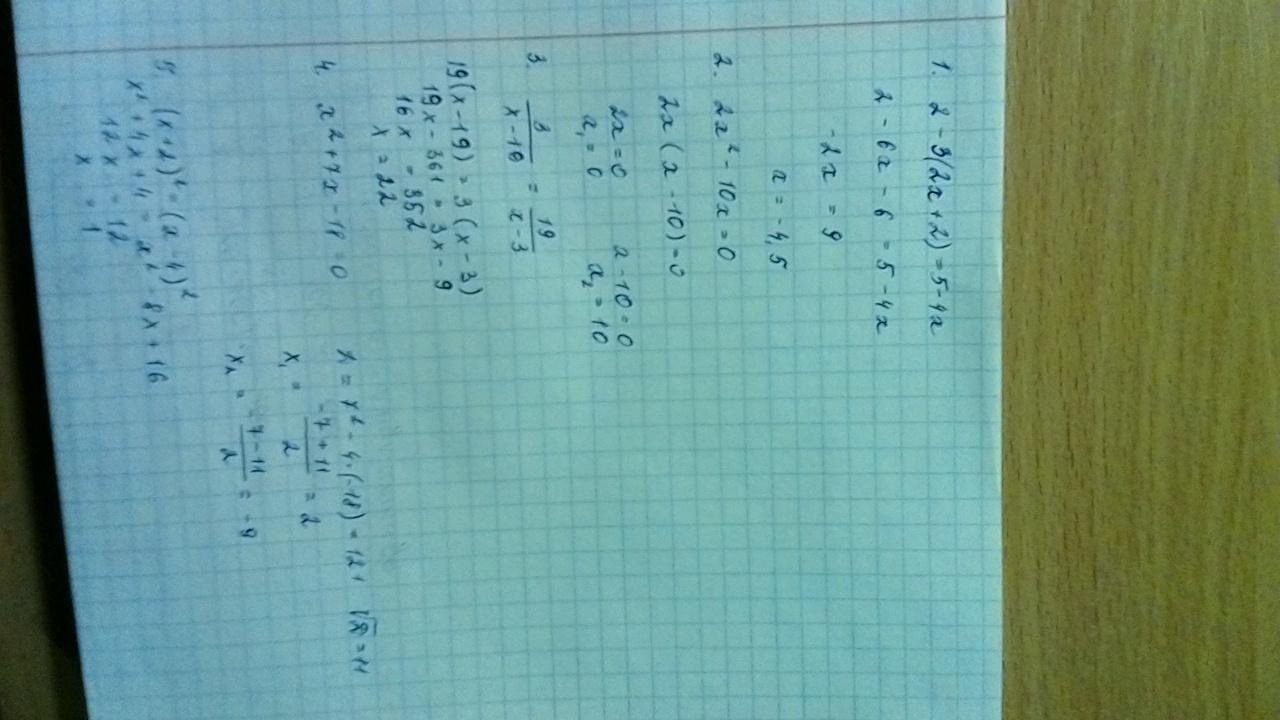 1. 2 - 3(2x+2) = 5-4x
2 - 6x - 6 = 5 - 4x
-2x = 9
x = -4,5
2. 2x² - 10x = 0
2x (x - 10) = 0
2x = 0 x - 10 = 0
x₁ = 0 x₂ = 10
3. 3/(x-19) = 19/(x-3)
19(x-19) = 3(x-3)
19x - 361 = 3x - 9
16x = 352
x = 22
4. x² + 7x - 18 = 0
D = 7² - 4·(-18) = 121 √D = 11
x₁ = (-7+11)/2 = 2
x₂ = (-7-11)/2 = -9
5. (x+2)² = (x-4)²
x² + 4x + 4 = x² - 8x + 16
12x = 12
x = 1